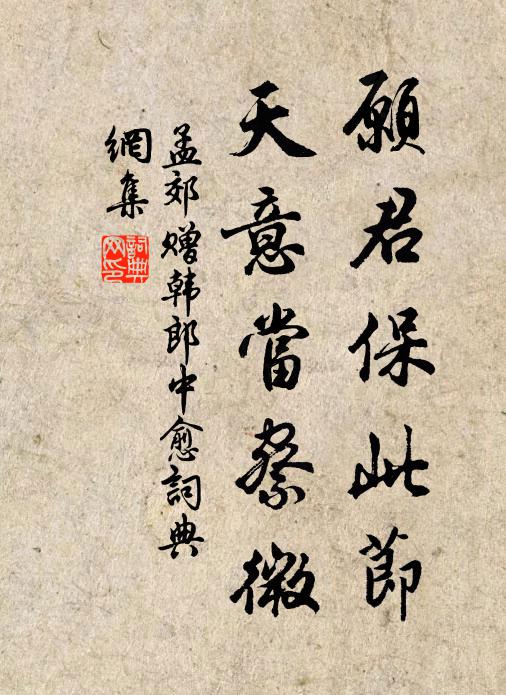 願君保此節
天意當察微
孟郊贈韩郎中愈詞典
網集
詞典
网印